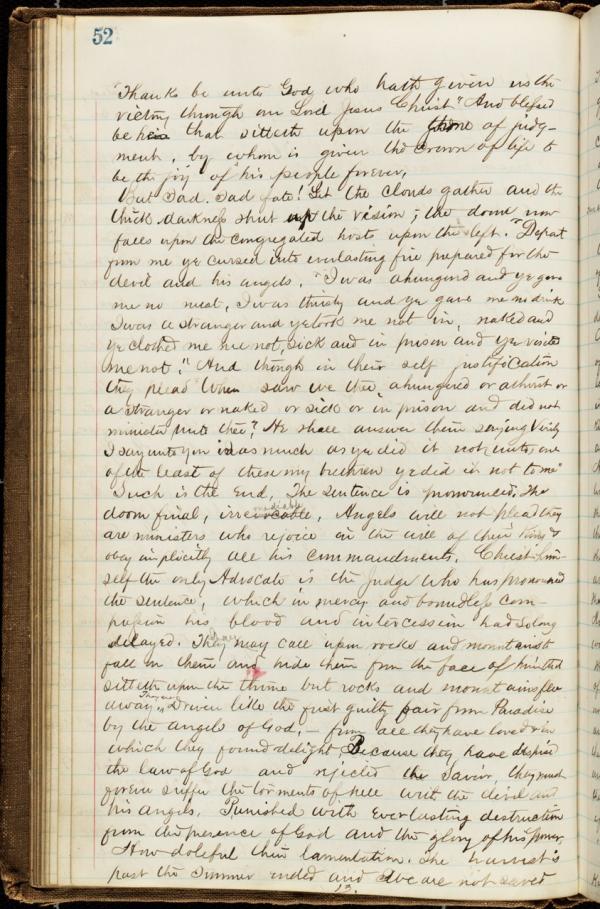 52
"Thanks be unto God who hath given us the
victory through our Lord Jesus Christ" And blessed
be he that sitteth upon the throne of judg-
ment, by whom is given the Crown of life to
be the joy of his people forever.
But Sad. Sad fate! Let the clouds gather and the
thick darkness shut up the vision; the doom now
falls upon the congregated hosts upon the left. "Depart
from me ye cursed into everlasting fire prepared for the
devil and his angels. "I was ahungered and ye gave
me no meat, I was thirsty and ye gave me no drink
I was a stranger and ye took me not in, naked and
ye clothed me not, Sick and in prison and ye visited
me not." And though in their self justification
they plead "When saw we thee ahungered or athirst or
a stranger or naked or sick or in prison and did not
minister unto thee?" He shall answer them saying Verily
I say unto you inasmuch as ye did it not unto one
of the least of these my brethren ye did it not to me"
Such is the End. The Sentence is pronounced. The
doom final, irremediable, Angels will not plead they
are ministers who rejoice in the will of their King &
obey implicitly all his commandments. Christ him-
self the only Advocate is the judge who has pronounced
the sentence, which in mercy and boundless com-
passion his blood and intercession had so long
delayed. They may call upon rocks and mountains to
fall on them and hide them from the face of him that
sitteth upon the throne but rocks and mountains flee
away. They are Driven like the first guilty pair from Paradise
by the angels of God, — from all they have loved or in
which they found delight, Because they have despised
the law of God and rejected the Savior, they must
forever suffer the torments of hell with the devil and
his angels. Punished with Everlasting destruction
from the presence of God and the glory of his power.
How doleful their lamentation. The harvest is
past the Summer ended and we are not saved